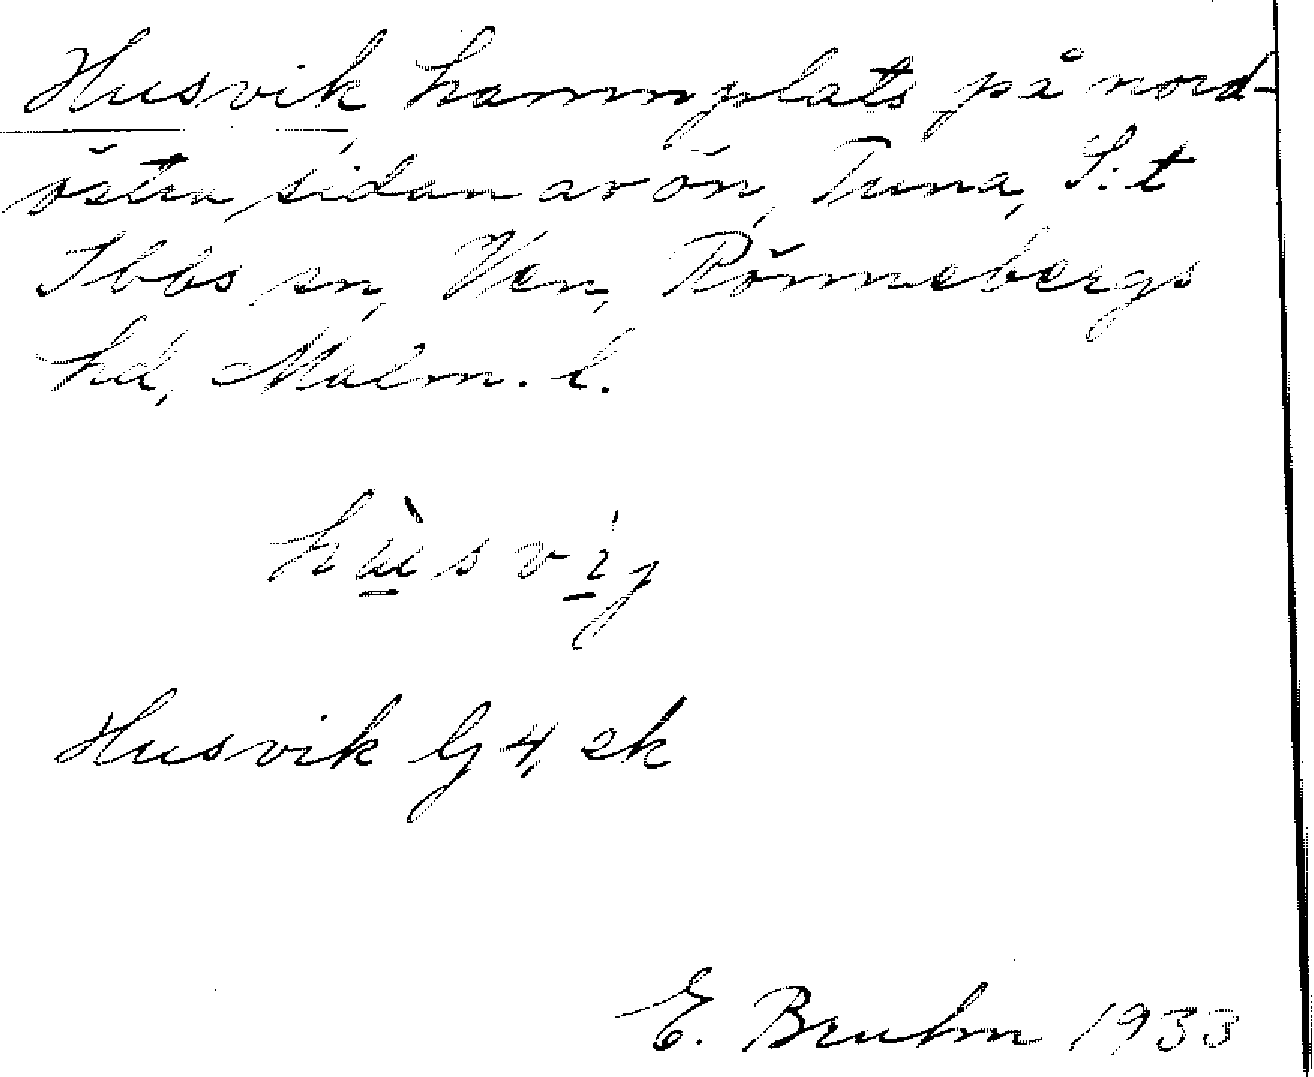 Husvik, hamnplats på nord-
östra sidan av ön, Tuna, S:t
Ibbs sn, Ven, Rönnebergs
hd, Malm. l.
hùsvíg
Husvik G 4, ek
E. Bruhn 1933